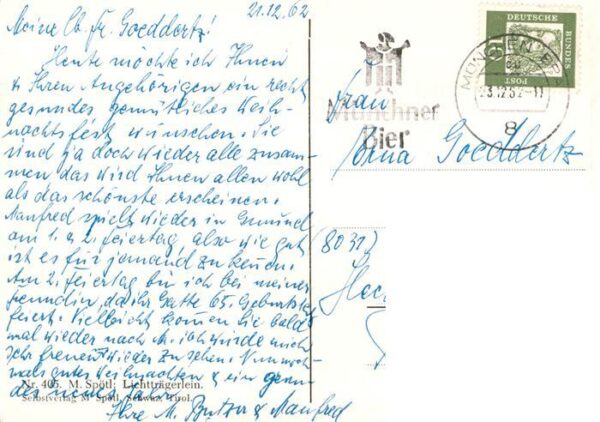 21.12.62
Meine lb. Fr. Goeddertz!
Heute möchte ich Ihnen
& Ihren Angehörigen ein recht
gesundes gemütliches Weih-
nachtsfest wünschen. Sie
sind ja doch wieder alle zusam-
men das wird Ihnen allen wohl
als das schönste erscheinen.
Manfred spielt wieder in Gmünd
am 1. & 2. Feiertag, also wie gut
ist es für jemand zu
Am 2. Feiertag bin ich bei meiner
Freundin, da ihr Gatte 65. Geburtstag
feiert. Vielleicht komen Sie bald
mal wieder nach M. ich würde mich
sehr freuen wieder zu sehen. Nunmoch-
mals gutes Weihnachten & ein gesun-
des neues Jahr
Ihre M. & Manfred
Nr. 405. M. Spötl: Lichtträgerlein.
Selbstverlag M. Spötl, Schwaz, Tirol.
Münchner
Bier
MÜNCHEN
23.12.62-11
8
DEUTSCHE
BUNDES
POST
10
Frau
Erna Goeddertz
(8031)
Hec